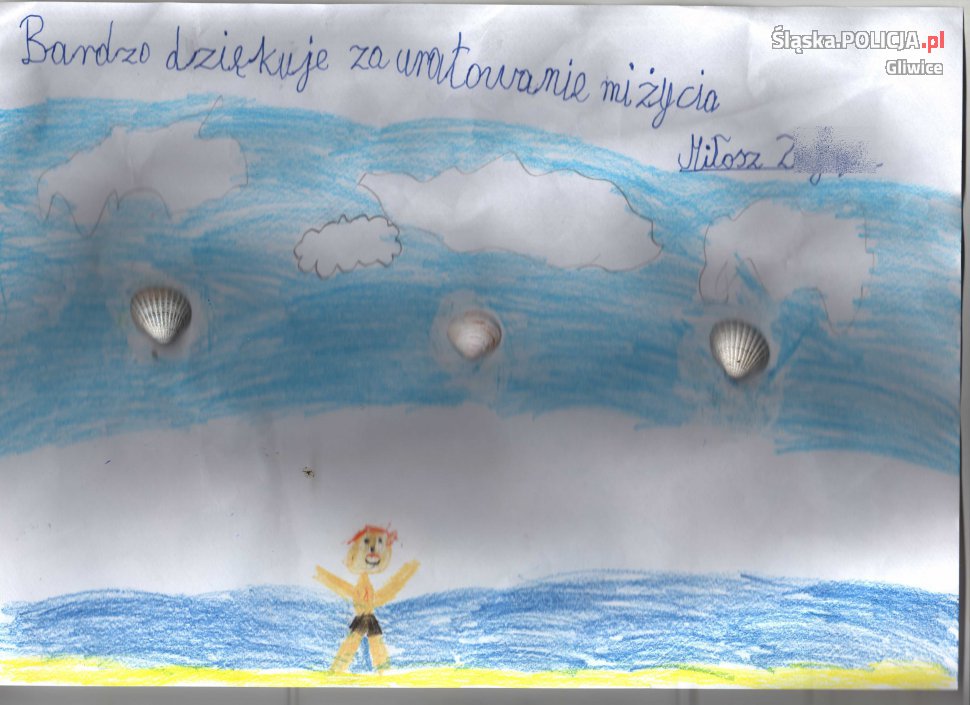 Bardzo dziękuje za uratowanie mi życia
Miłosz
Śląska.POLICJA.pl
Gliwice